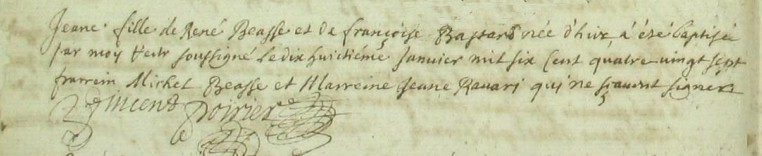 Jeane fille de René Beasse et de françoise Bastard née d'hier a été baptisée
par moy soussigné le dix huitiéme Janvier mil six Cent quatre vingt sept
parrein Michel Beasse et Marreine Jeane Ravari qui ne sçavent signer
Vincent Poirier